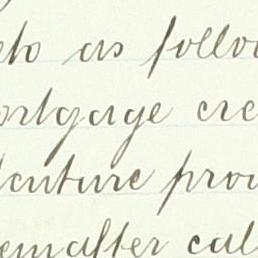 to as follo
ortgage cre
enture prov
einafter cal